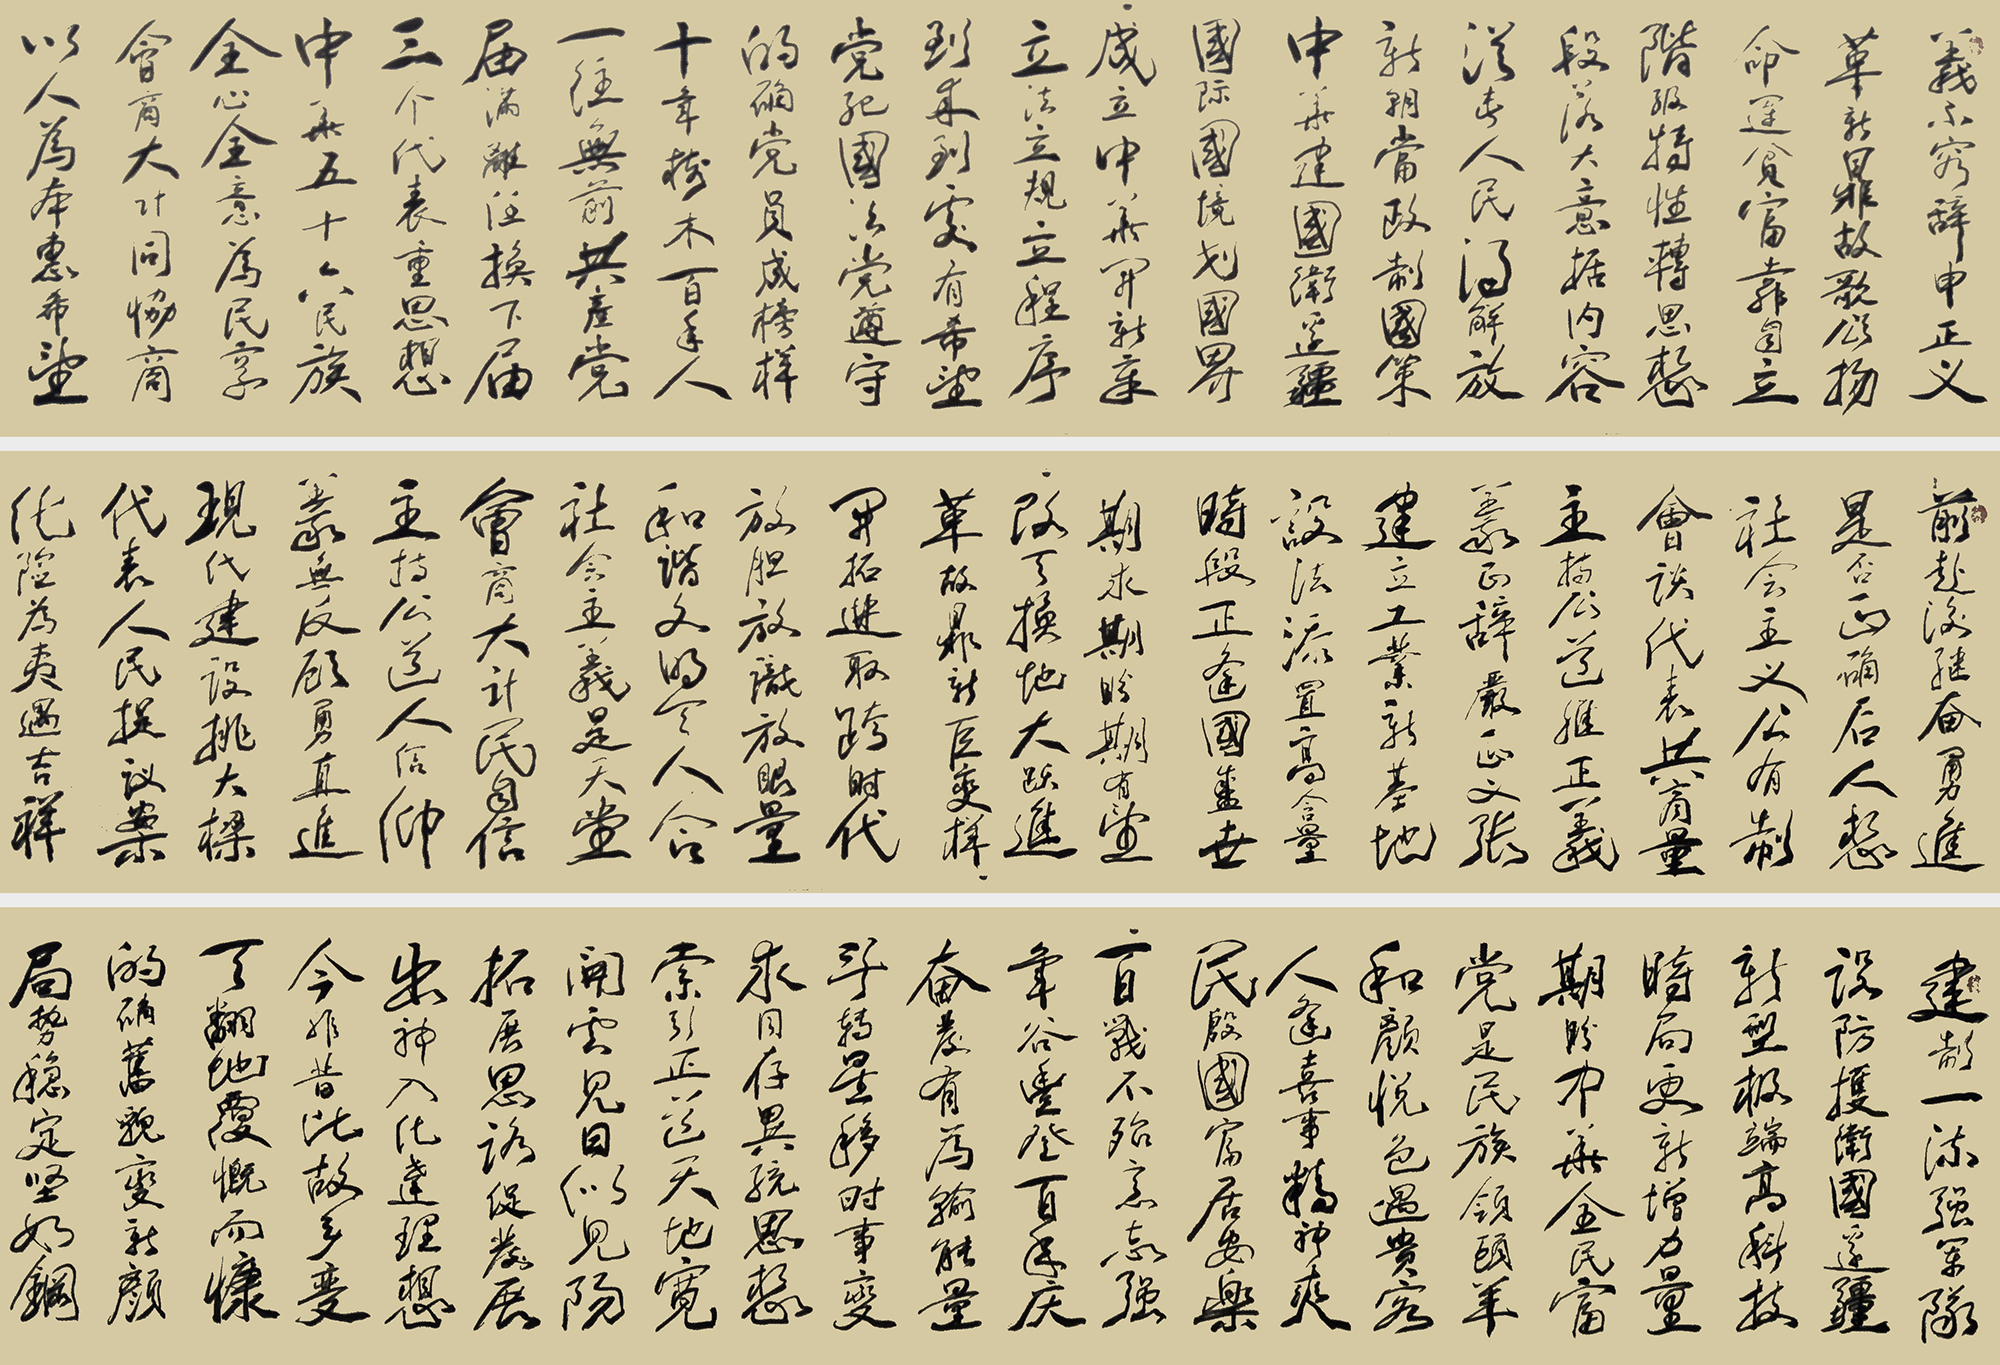 義不窮辞申正义
革新鼎故歌颂扬
命运贫富靠自立
階級特性轉思想
段落大意据内容
従此人民得解放
新朝當政制國策
中華建國衛边疆
國际國境划國界
成立中華開新章
立法立規立程序
到来到处有希望
党纪國法党遵守
的确党員成榜样
十年樹木百年人
一往無前共産党
届满離任换下届
三个代表重思想
中華五十六民族
全心全意為民享
會商大计同协商
以人為本惠希望
前赴後继奋勇進
是否正确后人想
社会主义公有制
會谈代表共商量
主持公道維正義
義正辞嚴正文张
建立工業新基地
設法添置高含量
時段正逢國盛世
期求期盼期有望
改天换地大跃進
革故鼎新巨变样
開拓進取跨时代
放胆放識放眼量
和諧文明令人合
社会主義是天堂
會商大計民自信
主持公道人信仰
義無反顾勇直進
現代建設挑大樑
代表人民提议案
化险為夷遇吉祥
建制一流强军隊
設防護衛國边疆
新型极端高科技
時局更新增力量
期盼中華全民富
党是民族領頭羊
和顏悦色遇贵客
人逢喜事精神爽
民殷國富居安樂
百戰不殆意志强
年谷豐登百年庆
奋發有為輸能量
斗转星移时事變
求同存異統思想
索引正道天地宽
開雲見日似見陽
拓展思路促發展
出神入化達理想
今非昔比故多变
天翻地覆慨而慷
的确舊貌變新顏
局势穩定坚如鋼